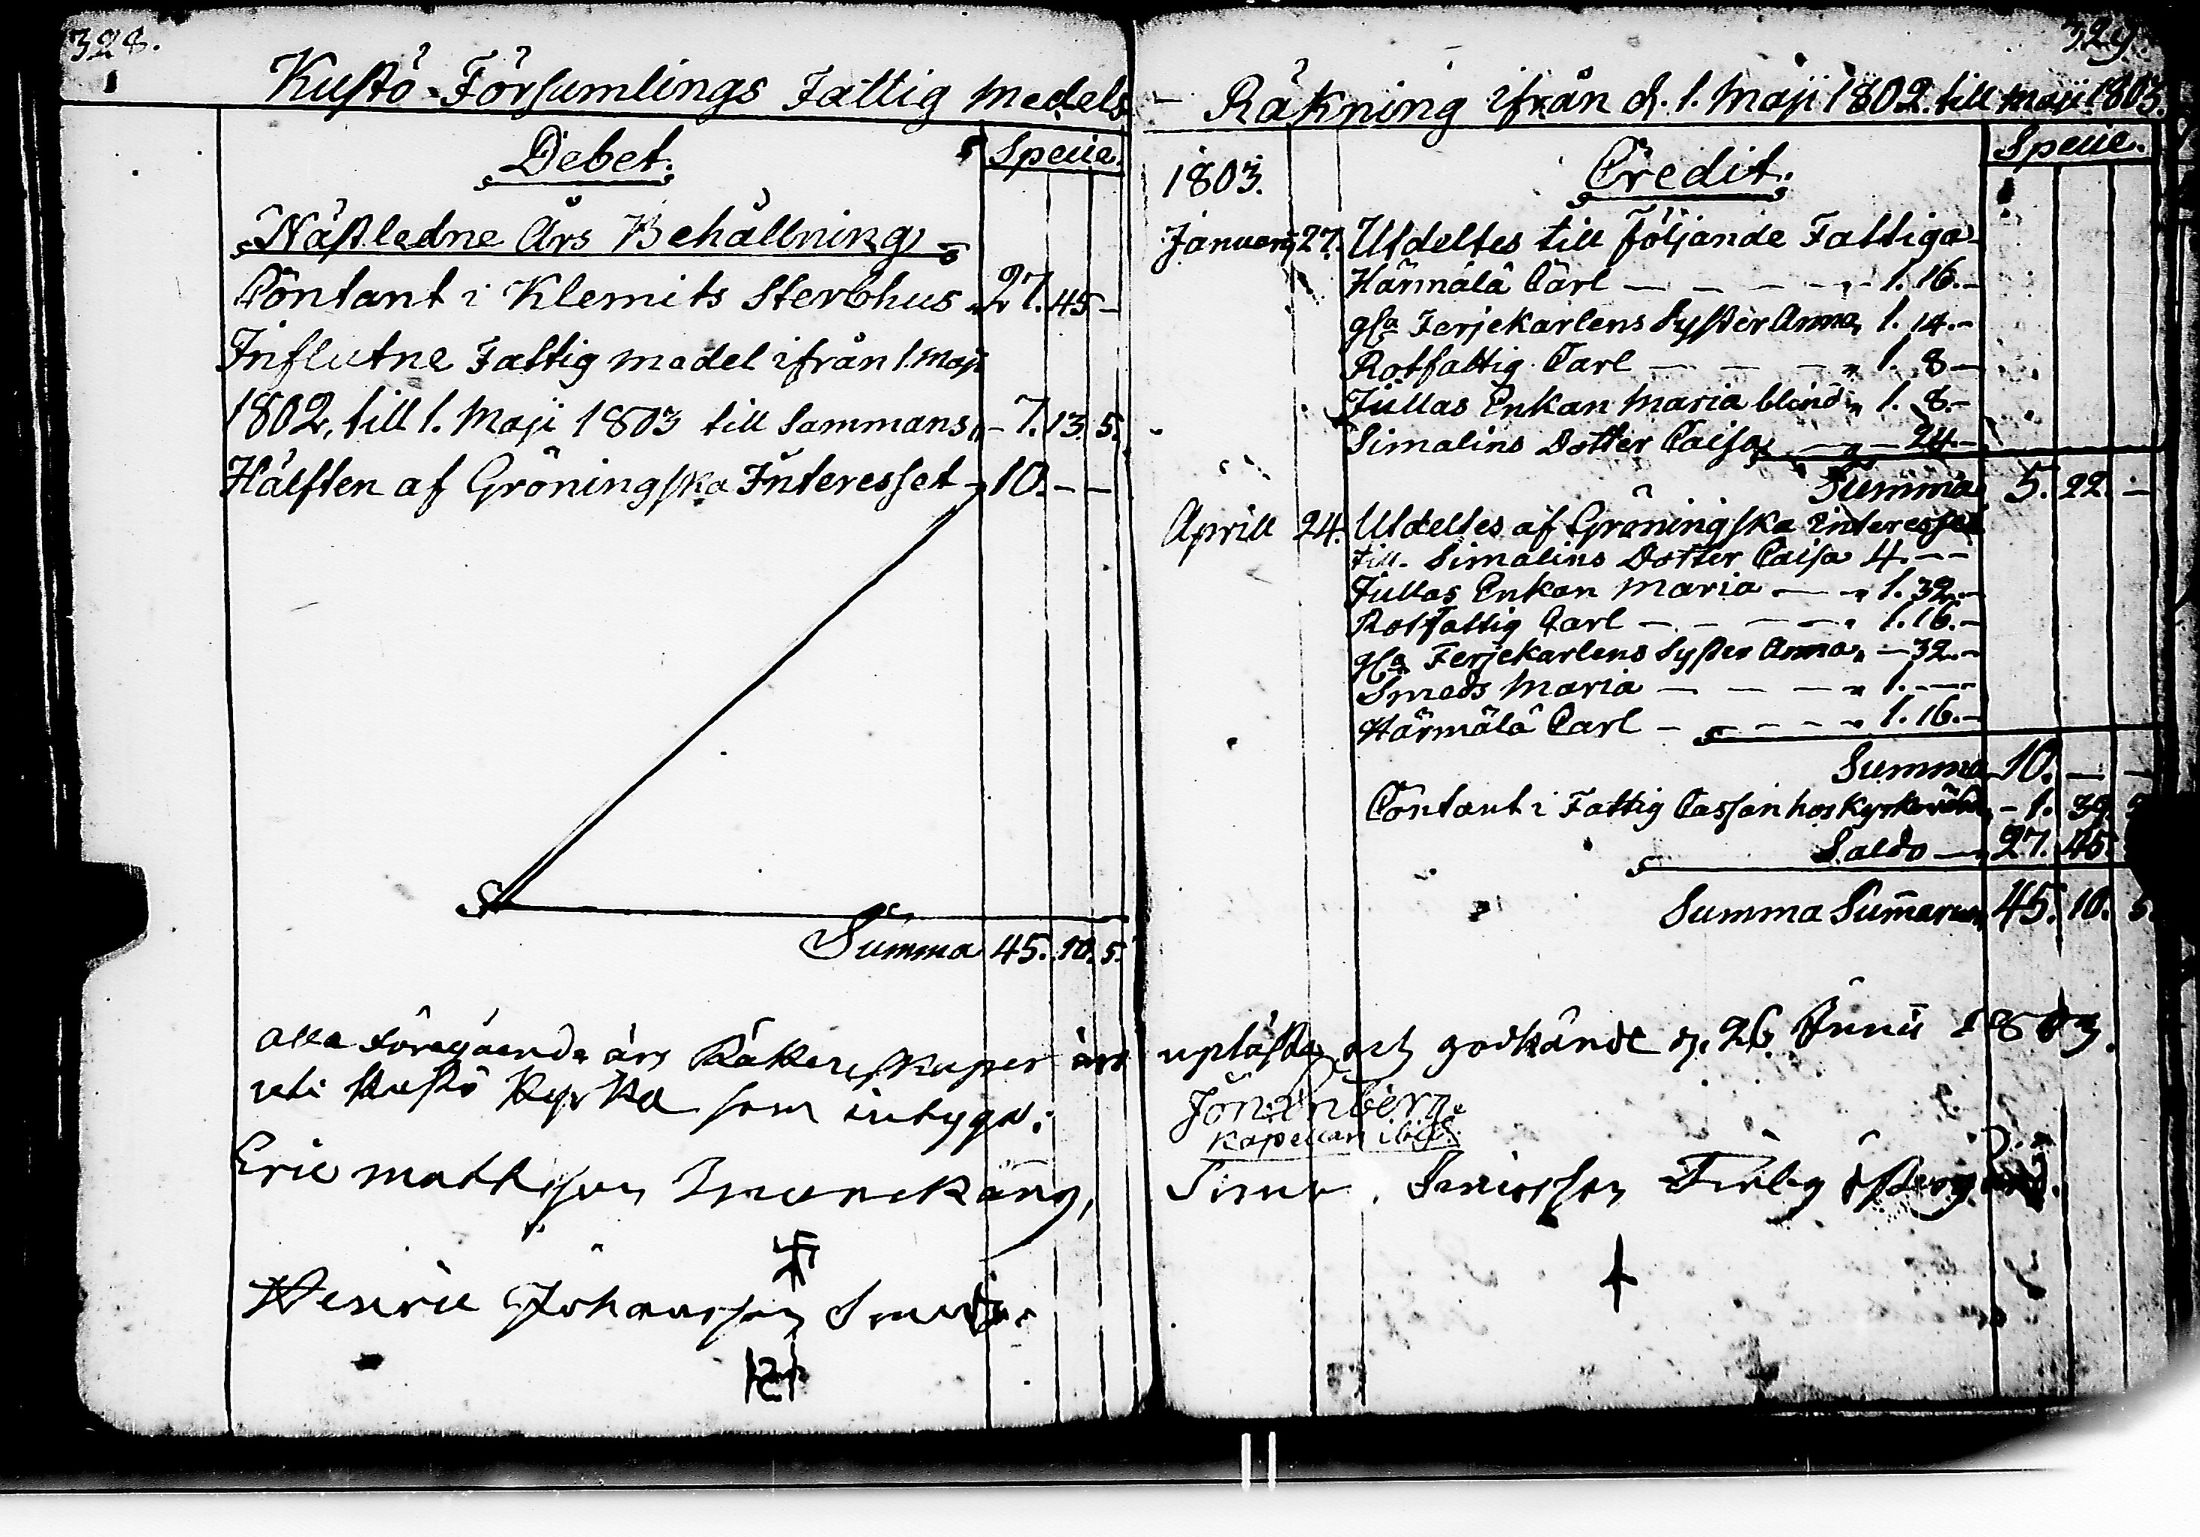 328.
Kustö Församlings Fattig Medels
Debet. Specie.
Nästledne Års Behållning
Contant i Klemits Sterbhus 27. 45 -
Influtne Fattig medel ifrån 1. Maji
1802, till 1. Maji 1803 till sammans - 7. 13. 5.
Hälften af Gröningska Interesset - 10. - -
Summa 45. 10. 5.
Alla föregående års Räkenskaper äro
uti Kustö Kyrka som intygas:
Eric Mattsson
Henric Johansson
329.
- Räkning ifrån d. 1. Maji 1802. till Maji 1803.
1803. Credit. Specie.
Januarii 27. Utdeltes till följande Fattiga
Härmälä Carl - - - - 1. 16. -
gla Ferjekarlens Syster Anna, 1. 14. -
Rotfattig Carl - - - " 1. 8 -
Jullas Enkan Maria blind " 1. 8. -
Simalins Dotter Caisa - " - 24 -
Summa 5. 22. -
Aprill 24. Utdeltes af Gröningska Interesset
till Simalins Dotter Caisa 4. - -
Jullas Enkan Maria - - " 1. 32. -
Rotfattig Carl - - - - " 1. 16. -
gla Ferjekarlens Syster Anna " - 32. -
Smeds Maria - - - " 1. - -
Härmälä Carl - - - - " 1. 16. -
Summa 10. - -
Contant i Fattig Cassan hos - 1. 39.
Saldo - 27. 45.
Summa Summarum 45. 10. 5.
upläste och godkände d. 26. Junii 1803.
Kapellan